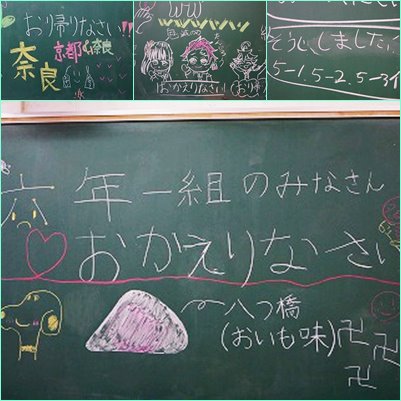 おり帰りなさい!!
奈良
京都&奈良
ww
おかえりなさい
そうじしました
5-1.5-2.5-3
六年一組のみなさん
おかえりなさい
八つ橋
(おいも味)
卍
卍
卍